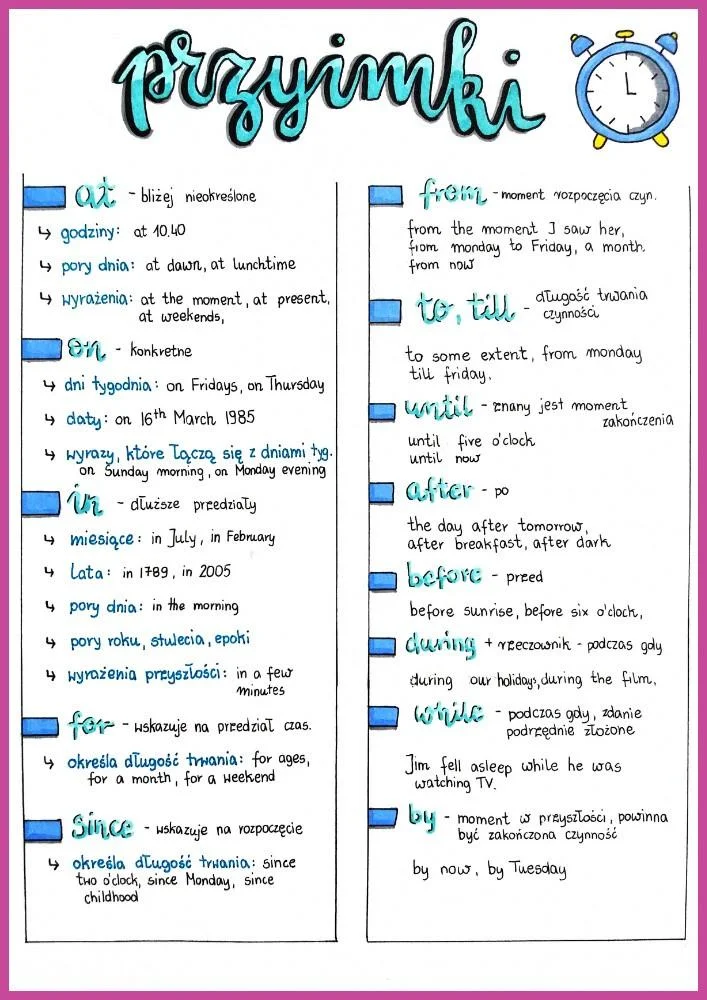 przyimki
at - bliżej nieokreślone
↳ godziny: at 10.40
↳ pory dnia: at dawn, at lunchtime
↳ wyrażenia: at the moment, at present,
at weekends,
on - konkretne
↳ dni tygodnia: on Fridays, on Thursday
↳ daty: on 16th March 1985
↳ wyrazy, które łączą się z dniami tyg.
on Sunday morning, on Monday evening
in - dłuższe przedziały
↳ miesiące: in July, in February
↳ Lata: in 1789, in 2005
↳ pory dnia: in the morning
↳ pory roku, stulecia, epoki
↳ wyrażenia przyszłości: in a few
minutes
for - wskazuje na przedział czas.
↳ określa długość trwania: for ages,
for a month, for a weekend
since - wskazuje na rozpoczęcie
↳ określa długość trwania: since
two o'clock, since Monday, since
childhood
from - moment rozpoczęcia czyn.
from the moment I saw her,
from monday to Friday, a month
from now
to, till - długość trwania
czynności
to some extent, from monday
till friday.
until - znany jest moment
zakończenia
until five o'clock
until now
after - po
the day after tomorrow,
after breakfast, after dark
before - przed
before sunrise, before six o'clock,
during + rzeczownik - podczas gdy
during our holidays, during the film,
while - podczas gdy, zdanie
podrzędnie złożone
Jim fell asleep while he was
watching TV.
by - moment w przyszłości, powinna
być zakończona czynność
by now, by Tuesday